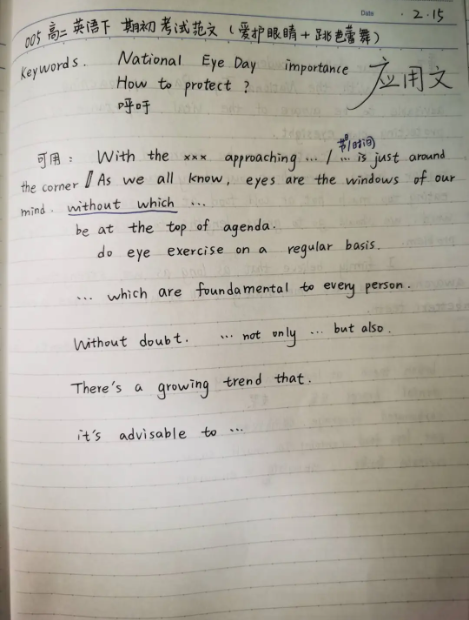 Date 2.15
005 高二英语下 期初考试范文（爱护眼睛+跳芭蕾舞）
Keywords. National Eye Day importance 应用文
How to protect ?
呼吁
节日/时间
可用： With the xxx approaching ... / ... is just around
the corner // As we all know, eyes are the windows of our
mind. without which ...
be at the top of agenda.
do eye exercise on a regular basis.
... which are foundamental to every person.
Without doubt. ... not only ... but also.
There's a growing trend that.
it's advisable to ...